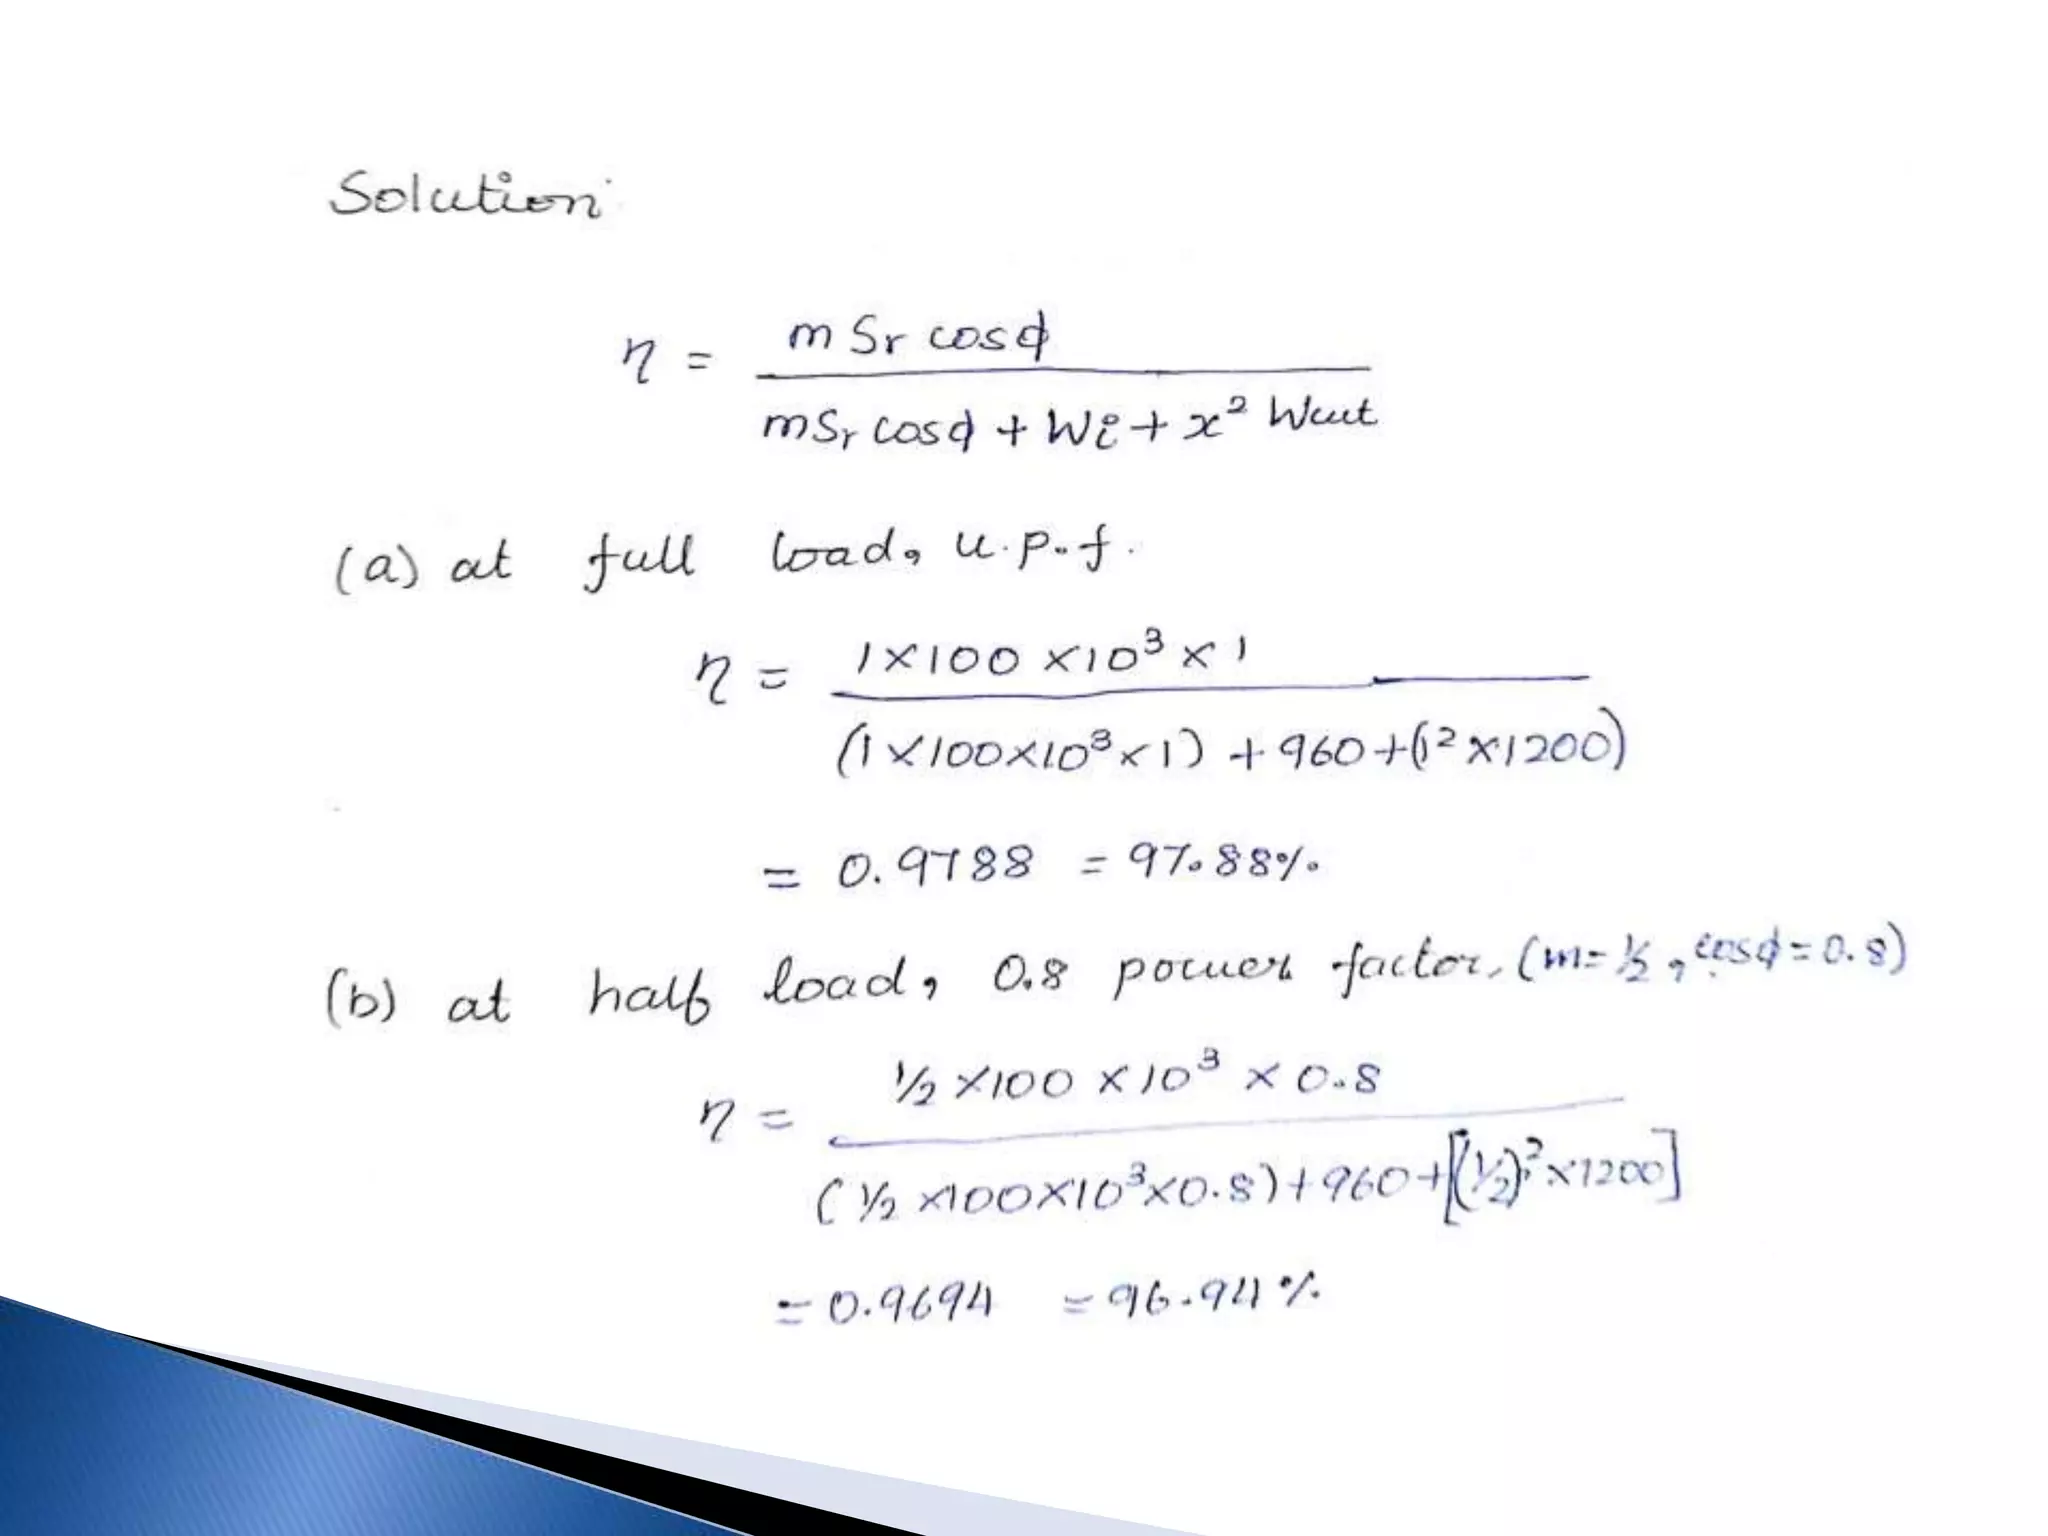 Solution
η = m Sr cosϕ / mSr cosϕ + Wi + x² Wcut
(a) at full load, u.p.f.
η = 1×100×10³×1 / (1×100×10³×1) + 960 + (1²×1200)
= 0.9788 = 97.88%.
(b) at half load, 0.8 power factor, (m=½, cosϕ=0.8)
η = ½×100×10³×0.8 / (½×100×10³×0.8)+960+[(½)²×1200]
= 0.9694 = 96.94%.